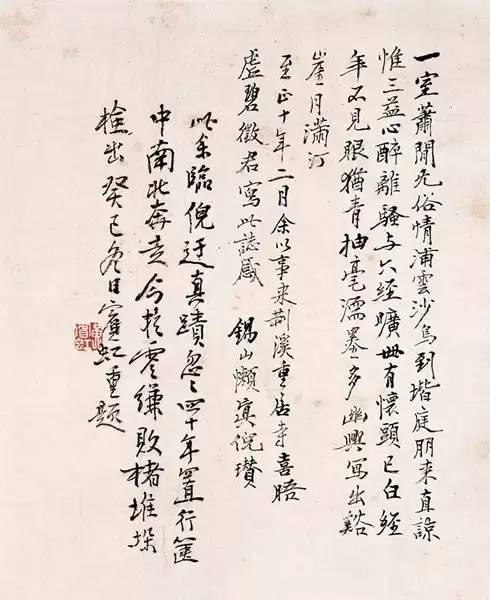 一室蕭閒无俗情浦雲沙鳥到堦庭朋來直諒
惟三益心醉離騷与六經曠世有懷頭已白經
年不見眼猶青抽毫濡墨多幽興寫出谿
崖月滿汀
至正十年二月余以事来荆溪重居寺喜晤
虛碧徵君寫此誌感 錫山懶倪瓚
此余臨倪迂真蹟忽〻四十年置行篋
中南北奔走今於零縑敗楮堆垛
檢出癸巳冬日賓虹重題